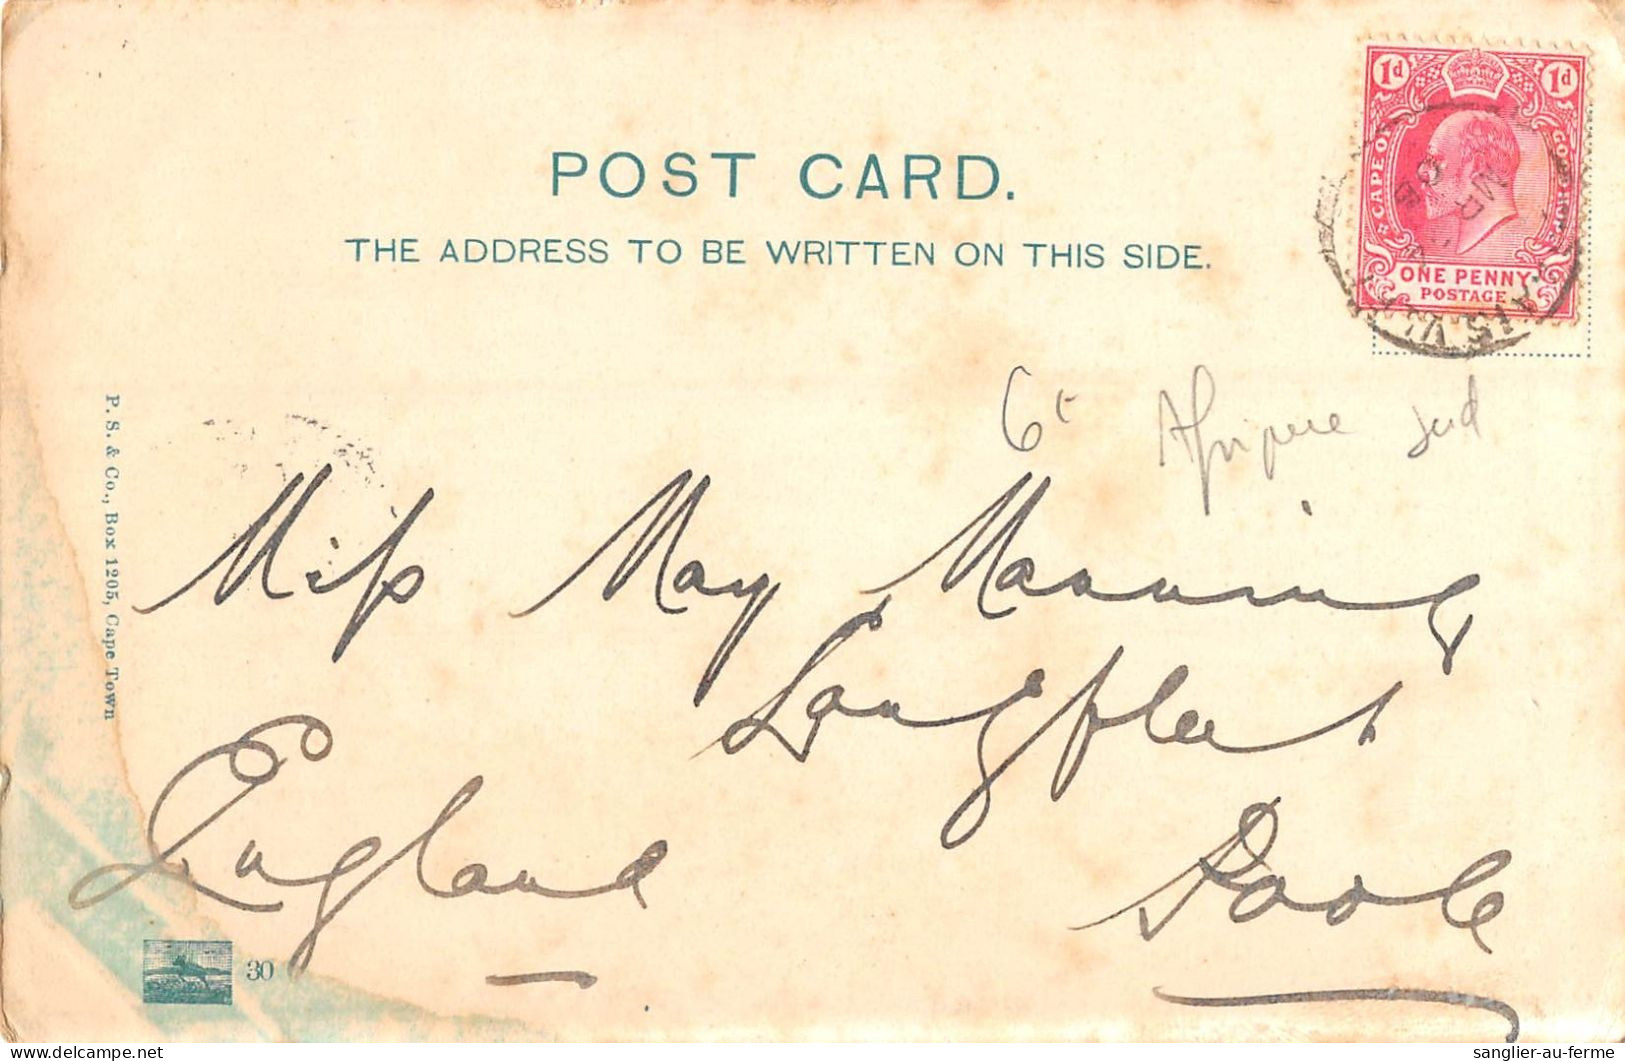 1d 1d
CAPE OF GOOD HOPE
ONE PENNY
POSTAGE
MR
POST CARD.
THE ADDRESS TO BE WRITTEN ON THIS SIDE.
6€ Afrique Sud
Miss May Manning
Longfleet
Poole
England
P. S. & Co., Box 1205, Cape Town
30
sanglier-au-ferme